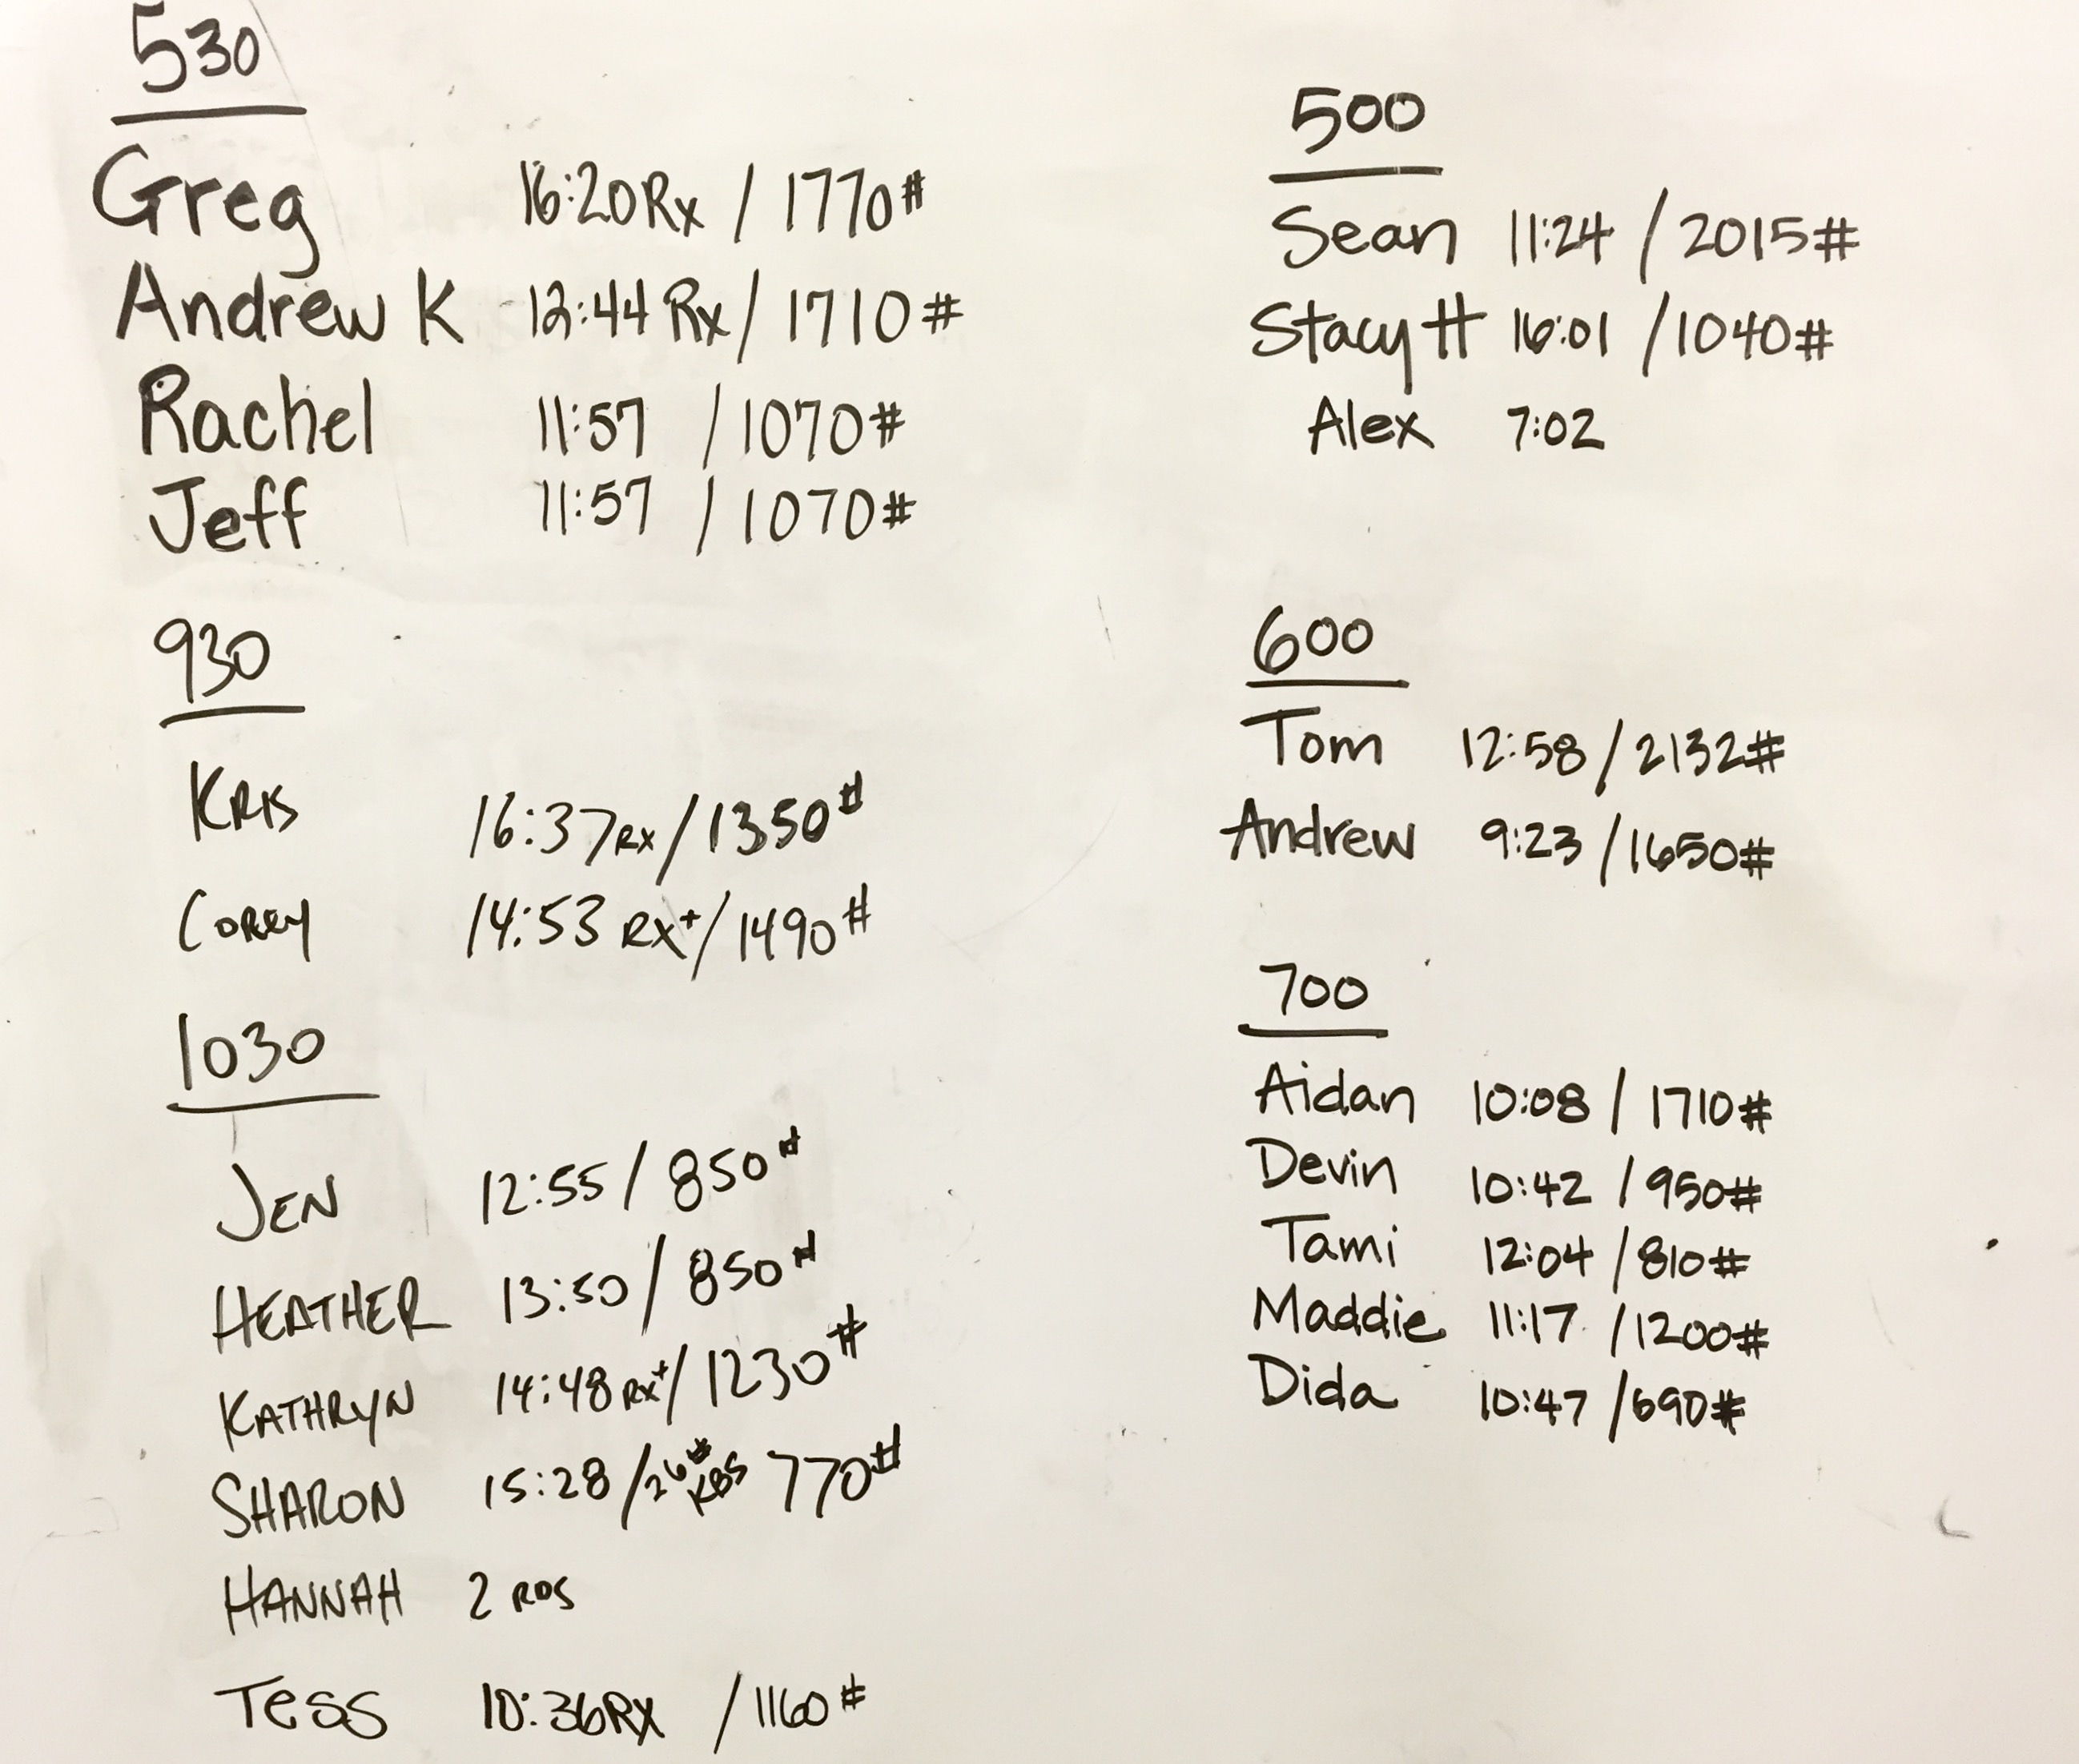 530
Greg 16:20 Rx / 1770#
Andrew K 12:44 Rx / 1710#
Rachel 11:57 / 1070#
Jeff 11:57 / 1070#
930
KRIS 16:37 RX / 1350#
COREY 14:53 RX+ / 1490#
1030
JEN 12:55 / 850#
HEATHER 13:50 / 850#
KATHRYN 14:48 RX+ / 1230#
SHARON 15:28 / 26# KBS 770#
HANNAH 2 RDS
Tess 10:36 RX / 1160#
500
Sean 11:24 / 2015#
Stacy H 16:01 / 1040#
Alex 7:02
600
Tom 12:58 / 2132#
Andrew 9:23 / 1650#
700
Aidan 10:08 / 1710#
Devin 10:42 / 950#
Tami 12:04 / 810#
Maddie 11:17 / 1200#
Dida 10:47 / 690#